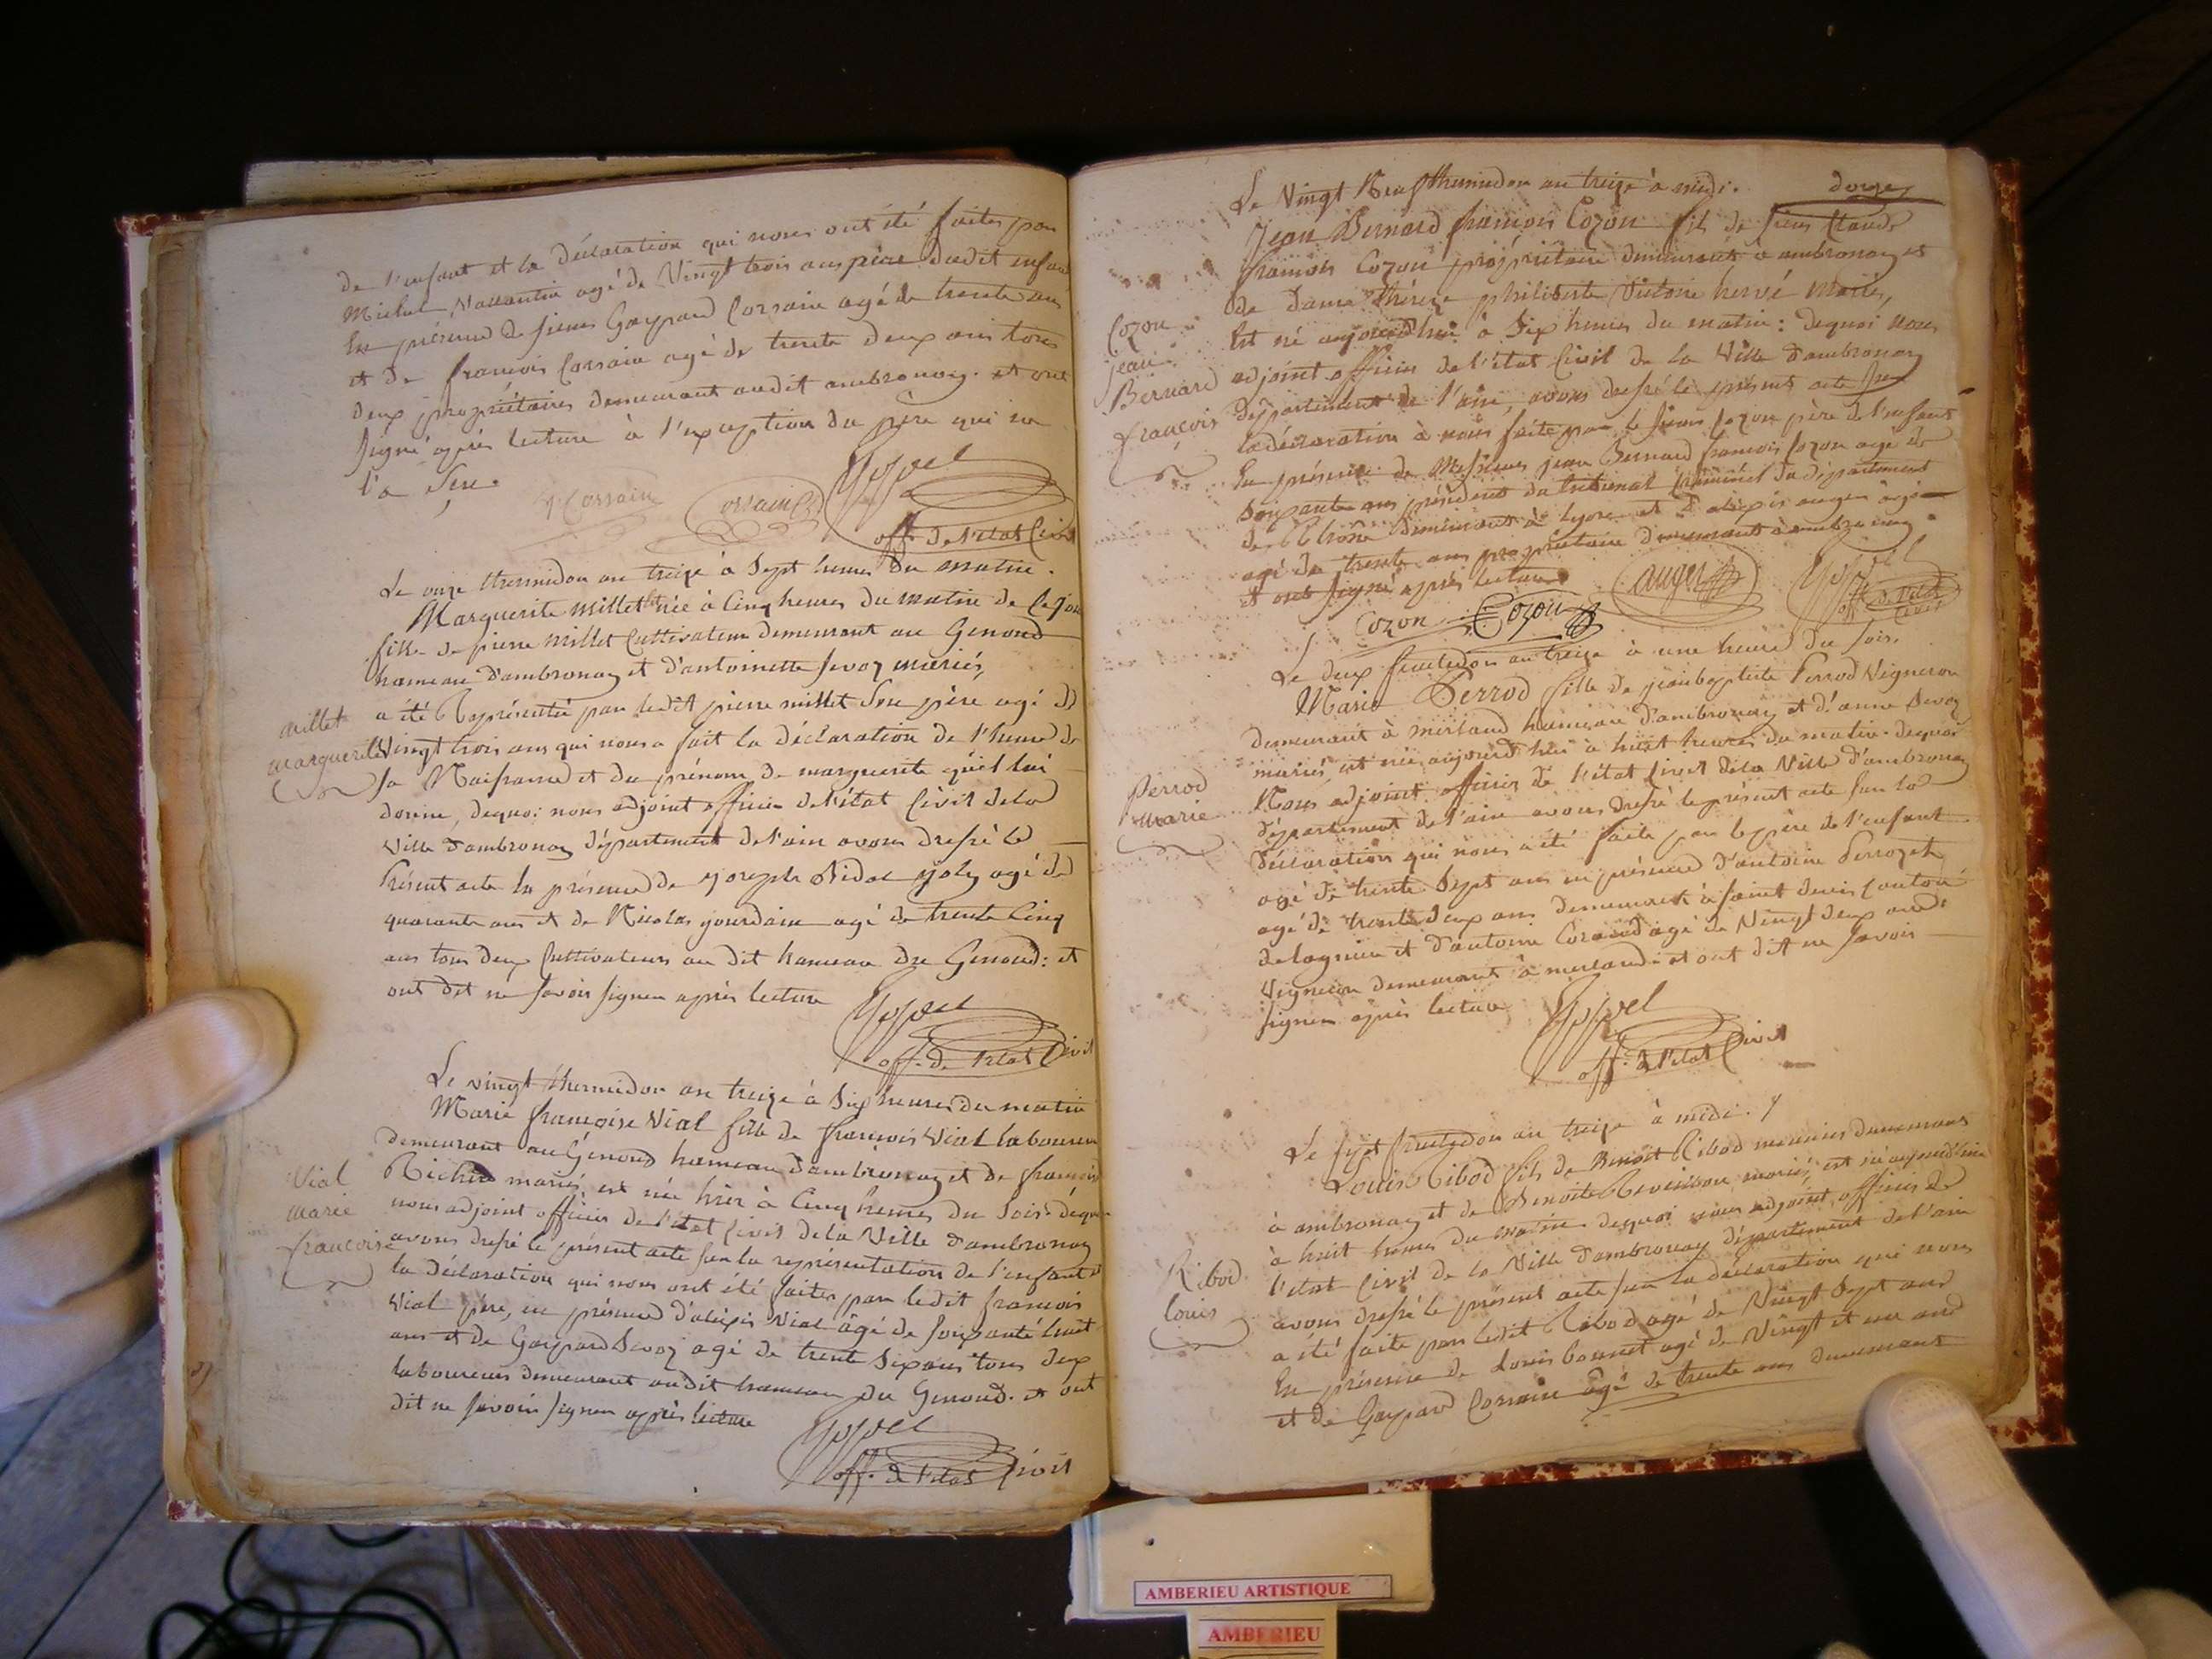 de l'enfant et la déclaration qui nous ont été faites par
Michel Vallantin agé de Vingt trois ans père dudit enfant
En présence de sieurs Gaspard Corsain agé de trente ans
et de françois Corsain agé de trente deux ans tous
deux propriétaires demeurant audit ambronay. et ont
signé après lecture à l'exception du père qui ne
l'a sçu.
Corsain Corsain
off. de l'état Civil
Le onze thermidor an treize à Sept heures du matin.
Marguerite Millet née à Cinq heures du matin de ce jour
fille de pierre Millet Cultivateur demeurant au Genoud
hameau d'ambronay et d'antoinette Sevoz mariés,
a été Représentée par ledit pierre millet son père agé de
millet
marguerite
Vingt trois ans qui nous a fait la déclaration de l'heure de
sa Naissance et du prénom de marguerite qu'il lui
donne, dequoi nous adjoint officier de l'état Civil de la
Ville d'ambronay département de l'ain avons dressé le
Présent acte En présence de joseph Bidal joly agé de
quarante ans et de Nicolas jourdain agé de trente Cinq
ans tous deux Cultivateurs au dit hameau du Genoud: et
ont dit ne savoir signer après lecture
off. de l'état Civil
Le vingt thermidor an treize à Six heures du matin
Marie françoise Vial fille de françois Vial laboureur
demeurant au Genoud hameau d'ambronay et de françoise
Vial
marie
françoise
Richerd mariés, est née hier à Cinq heures du Soir. déquoi
nous adjoint officier de l'état Civil de la Ville d'ambronay
avons dressé le présent acte sur la représentation de l'enfant et
la déclaration qui nous ont été faites par ledit françois
Vial père, en présence d'alexis Vial âgé de soixante huit
ans et de Gaspard Sevoz agé de trente Six ans tous deux
laboureurs demeurant audit hameau du Genoud. et ont
dit ne savoir signer après lecture
off. de l'état Civil
douze
Le Vingt Neuf thermidor an treize à midi.
Jean Bernard françois Cozon fils de sieur Claude
françois Cozon propriétaire demeurant à ambronay et
de dame thérèze philiberte Victoire hervé Mariés,
Cozon
jean
Bernard
françois
Est né aujourd'hui à Six heures du matin: dequoi Nous
adjoint officier de l'état Civil de la Ville d'ambronay
département de l'ain, avons dressé le présent acte sur
la déclaration à nous faite par le sieur Cozon père de l'enfant
En présence de Messieurs jean Bernard françois Cozon agé de
Soixante ans président du tribunal Criminel du département
du Rhône demeurant à lyon et d'alexis auger agé
agé de trente ans propriétaire demeurant à ambronay
et ont signé après lecture
Cozon Cozon auger
off. de l'état Civil
Le deux fructidor an treize à une heure du soir.
Marie Perrod fille de jean baptiste Perrod Vigneron
demeurant à merland hameau d'ambronay et d'anne Sevoz
mariés est née aujourd'hui à huit heures du matin. dequoi
Perrod
marie
Nous adjoint officier de l'état Civil de la Ville d'ambronay
département de l'ain avons dressé le présent acte sur la
déclaration qui nous a été faite par le père de l'enfant
agé de trente Sept ans en présence d'antoine Perrozet
agé de trente deux ans demeurant à saint denis Canton
de lagnieu et d'antoine Corand agé de Vingt deux ans
Vigneron demeurant à merland. et ont dit ne savoir
signer après lecture
off. de l'état Civil
Le sept fructidor an treize à midi.
Louis Ribod fils de Benoît Ribod meunier demeurant
à ambronay et de Benoite Reveillon mariés, est né aujourd'hui
à huit heures du matin dequoi nous adjoint officier de
Ribod
louis
l'état Civil de la Ville d'ambronay département de l'ain
avons dressé le présent acte sur la déclaration qui nous
a été faite par ledit Ribod agé de Vingt Sept ans
En présence de Louis bonnet agé de Vingt et un ans
et de Gaspard Corsain âgé de trente ans demeurant
AMBERIEU ARTISTIQUE
AMBERIEU